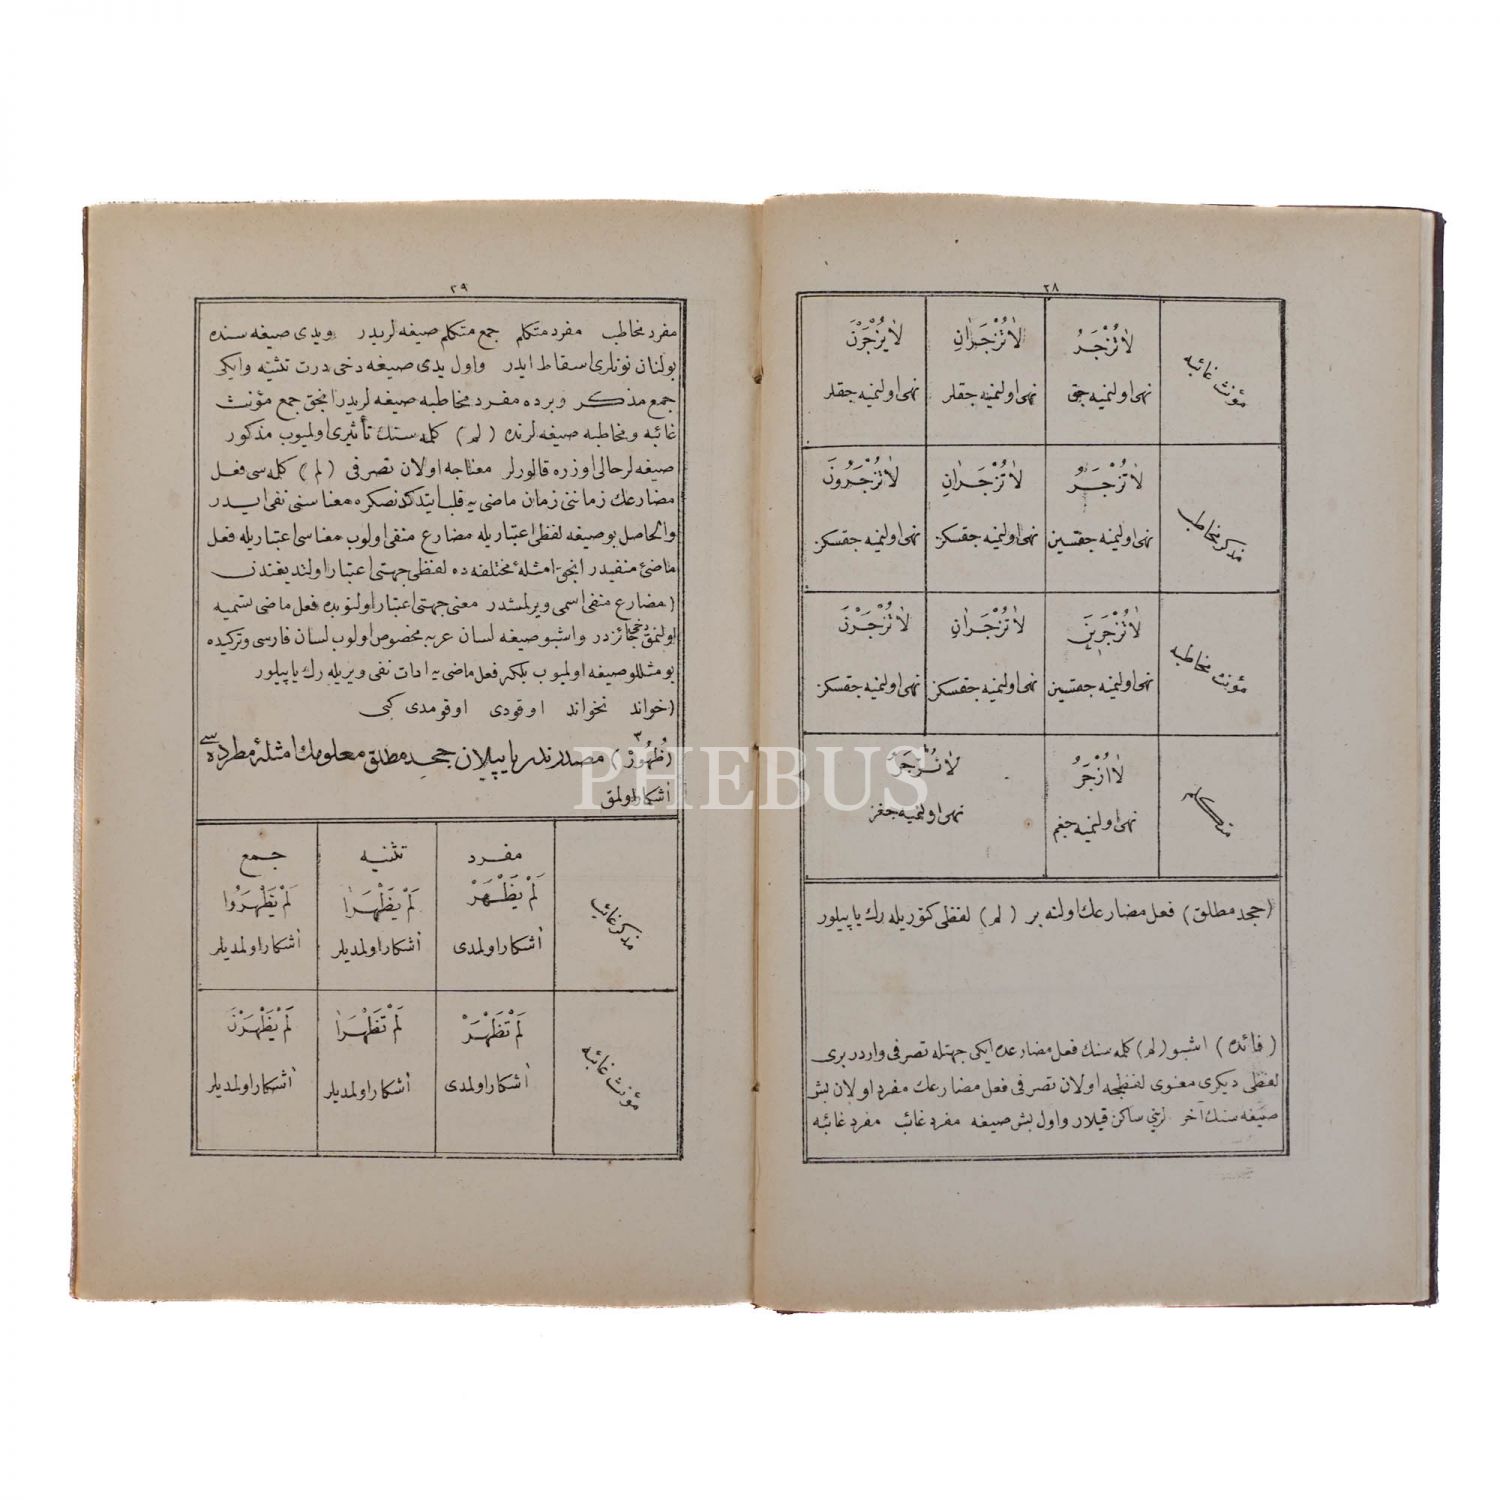 ٢٨
مؤنث غائبه
لَا تُزْجَرُ
لَا تُزْجَرَانِ
لَا يُزْجَرْنَ
نهی اولنمیه جق
نهی اولنمیه جقلر
نهی اولنمیه جقلر
مذكر مخاطب
لَا تُزْجَرُ
لَا تُزْجَرَانِ
لَا تُزْجَرُونَ
نهی اولنمیه جقسین
نهی اولنمیه جقسکز
نهی اولنمیه جقسکز
مؤنث مخاطبه
لَا تُزْجَرِينَ
لَا تُزْجَرَانِ
لَا تُزْجَرْنَ
نهی اولنمیه جقسین
نهی اولنمیه جقسکز
نهی اولنمیه جقسکز
متكلم
لَا اُزْجَرُ
لَا نُزْجَرُ
نهی اولنمیه جغم
نهی اولنمیه جغز
(جحد مطلق) فعل مضارعك اولنه بر (لم) لفظی کتوریله رك یاپیلور
(فائده) اشبو (لم) كلمه سنك فعل مضارعده ایکی جهتله تصرفی واردر بری
لفظی دیکری معنوی لفظجه اولان تصرفی فعل مضارعك مفرد اولان بش
صیغه سنك آخر لرینی ساکن قیلار و اول بش صیغه مفرد غائب مفرد غائبه
٢٩
مفرد مخاطب مفرد متكلم جمع متكلم صیغه لریدر ویدی صیغه سنده
بولنان نونلری اسقاط ایدر و اول یدی صیغه دخی درت تثنیه و ایکی
جمع مذكر و برده مفرد مخاطبه صیغه لریدر انجق جمع مؤنث
غائبه و مخاطبه صیغه لرنده (لم) كلمه سنك تأثیری اولمیوب مذکور
صیغه لر حالی اوزره قالورلر معناجه اولان تصرفی (لم) كلمه سی فعل
مضارعك زماننی زمان ماضی یه قلب ایتدكدنصكره معناسنی نفی ایدر
والحاصل بو صیغه لفظی اعتباریله مضارع منفی اولوب معناسی اعتباریله فعل
ماضئ منفیدر انجق امثلهٔ مختلفه ده لفظی جهتی اعتبار اولندیغندن
(مضارع منفی اسمی ویرلمشدر معنی جهتی اعتبار اولنوبده فعل ماضی تسمیه
اولنمق دخی جائزدر و اشبو صیغه لسان عربه مخصوص اولوب لسان فارسی و ترکیده
بو مثللو صیغه اولمیوب بلكه فعل ماضی یه ادات نفی ویریله رك یاپیلور
(خواند نخواند اوقودی اوقومدی کبی
(ظُهُورٌ) مصدرندن یاپیلان جحد مطلق معلومك امثلهٔ مطرده سی
آشکار اولمق
مفرد
تثنیه
جمع
مذكر غائب
لَمْ يَظْهَرْ
لَمْ يَظْهَرَا
لَمْ يَظْهَرُوا
آشکار اولمدی
آشکار اولمدیلر
آشکار اولمدیلر
مؤنث غائبه
لَمْ تَظْهَرْ
لَمْ تَظْهَرَا
لَمْ يَظْهَرْنَ
آشکار اولمدی
آشکار اولمدیلر
آشکار اولمدیلر
PHEBUS